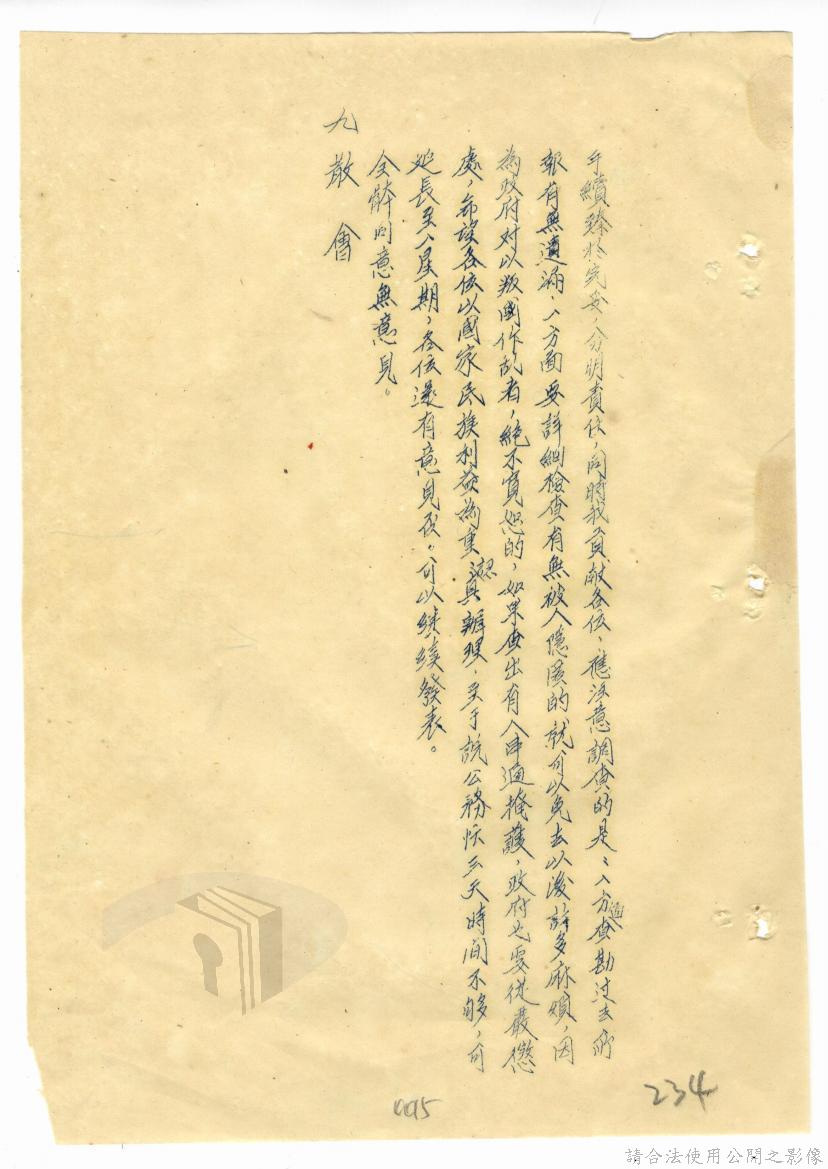 手續臻於完妥，分明責任，同時我貢献各位，應注意調查的是：一方面查勘过去所
報有無遺漏，一方面要詳細檢查有無被人隱匿的就可以免去以後許多麻煩，因
為政府对以叛國作乱者，絕不寬恕的，如果查出有人串通掩護，政府也要從嚴懲
處，希望各位以國家民族利益為重認真辦理，至于說公務忙三天時間不够，可
延長至一星期，各位還有意見否。可以继續發表。
全体同意無意見。
九 散 會
0095
234
請合法使用公開之影像